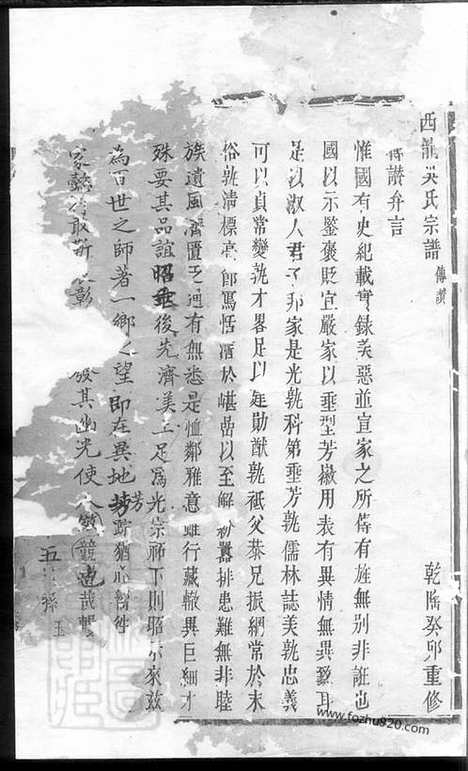 西龍吳氏宗譜 傳讚 乾隆癸卯重修
傳讚弁言
惟國有史紀載實錄美惡並宣家之所傳有旌無别非誑也
國以示鑒褒貶宜嚴家以垂型芳徽用表有異情無異致耳
是以淑人君子邦家是光孰科第垂芳孰儒林誌美孰忠義
可以貞常變孰才畧足以建勛猷孰祗父恭兄振綱常於末
俗孰清標亮節篤恬澹於嵁嵒以至解紛排患難無非睦
族遺風濟匱乏週有無悉是恤鄰雅意雖行藏轍異巨細才
殊要其品誼昭垂後先濟美上足為光宗祊下則昭示來茲
為百世之師著一鄉之望即在異地芳踪猶
家 敢 彰 發其幽光使
五 孫
www.fozhu920.com